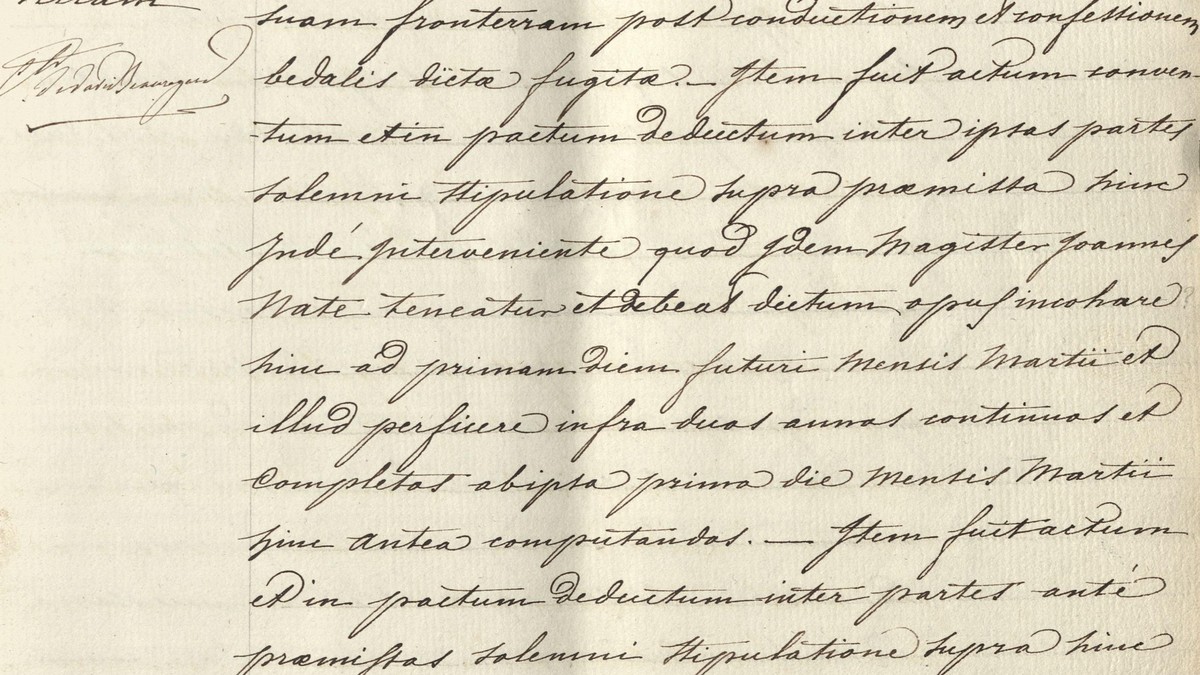 suam fronterram post conductionem et confestionem
bedalis dictæ fugitæ. — Item fuit actum conven-
tum et in pactum deductum inter ipsas partes
solemni stipulatione supra præmissa hinc
Indé interveniente quod Idem Magister Joannes
Nate teneatur et debeat dictum opus incohare
hinc ad primam diem futuri Mensis Martii et
illud perficere infra duos annos continuos et
Completos ab ipsa prima die Mensis Martii
hinc antea computandos. — Item fuit actum
et in pactum deductum inter partes anté
præmissas solemni stipulatione supra hinc